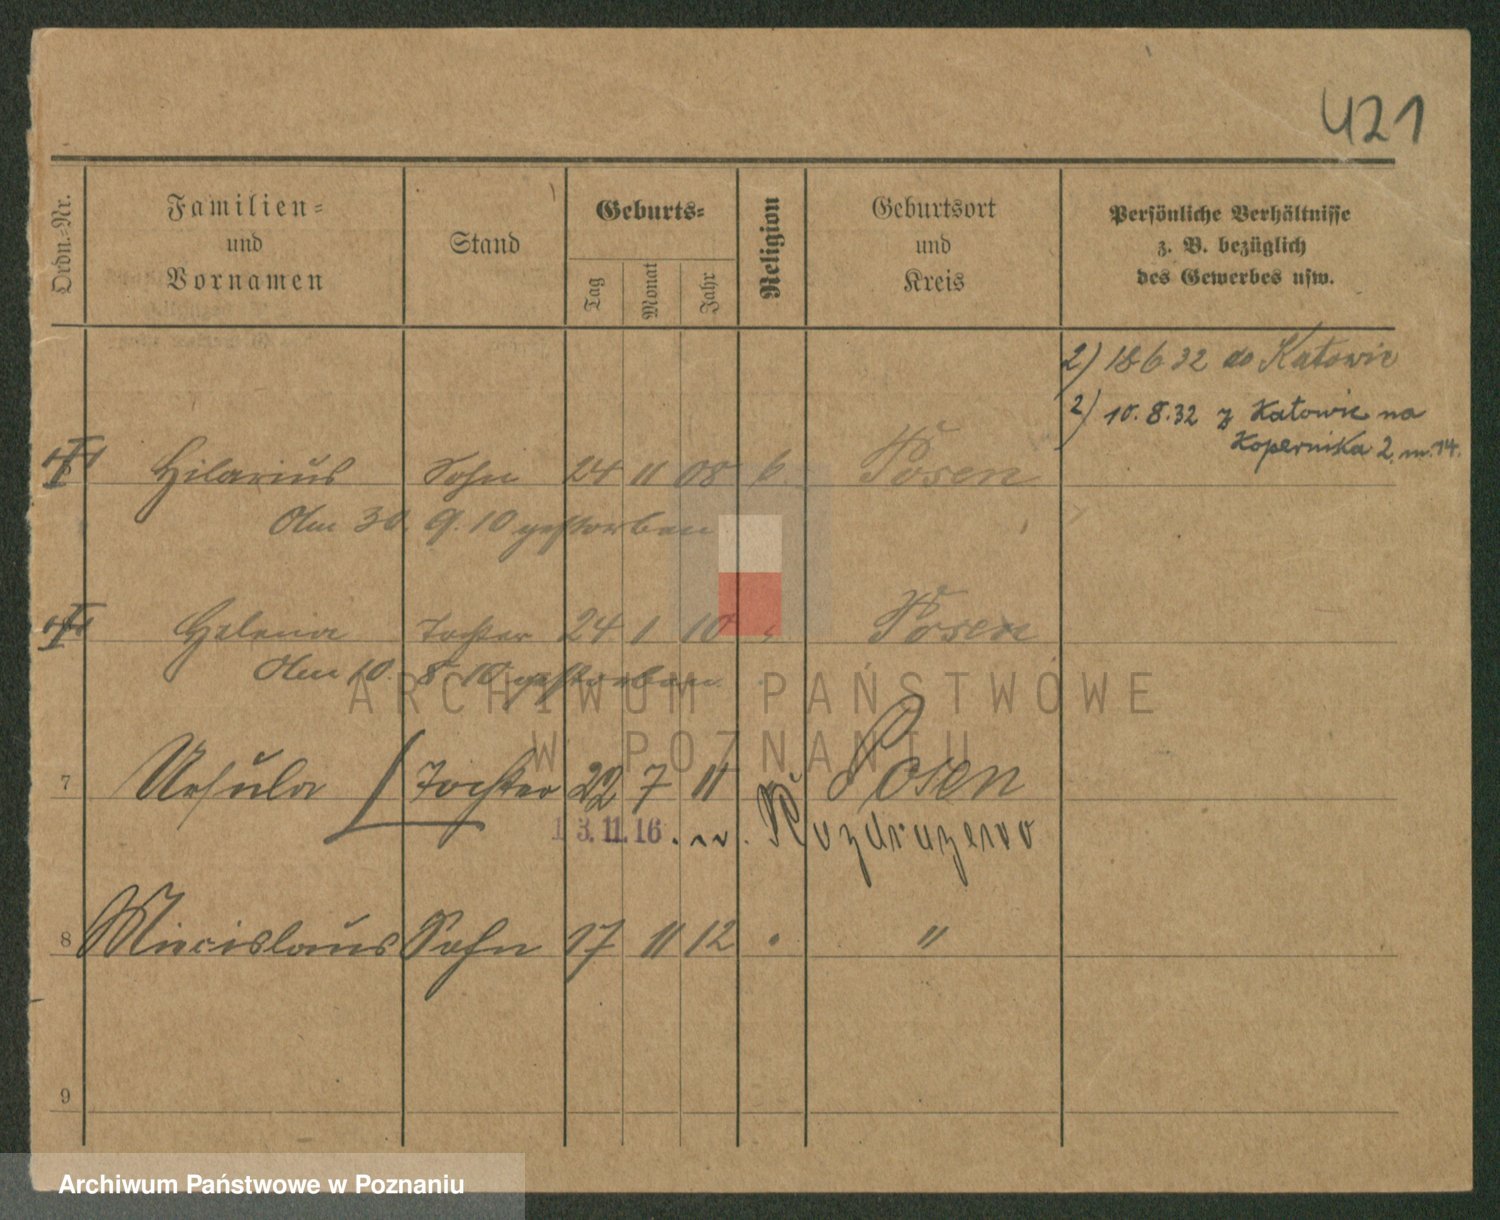 421
Ordn.-Nr.
Familien-
und
Vornamen
Stand
Geburts-
Tag
Monat
Jahr
Religion
Geburtsort
und
Kreis
Persönliche Verhältnisse
z. B. bezüglich
des Gewerbes usw.
2) 18 6 32 do Katowic
2) 10.8.32 z Katowic na
Kopernika 2. m. 14.
Hilarius Sohn 24 11 08 k. Posen
Am 30. 9. 10 gestorben
Helena Tochter 24 1 10 Posen
Am 10. 8. 10 gestorben
ARCHIWUM PAŃSTWOWE
W POZNANIU
7 Ursula Tochter 22 7 11 Posen
13.11.16. n. Rozdrazewo
8 Miecislaus Sohn 17 11 12 " "
9
Archiwum Państwowe w Poznaniu